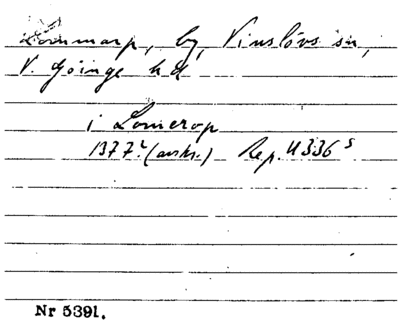 Lommarp, by, Vinslövs sn,
V. Göinge hd
i Lomerop
1377? (avskr.) Rep. 4336 s
Nr 5391.